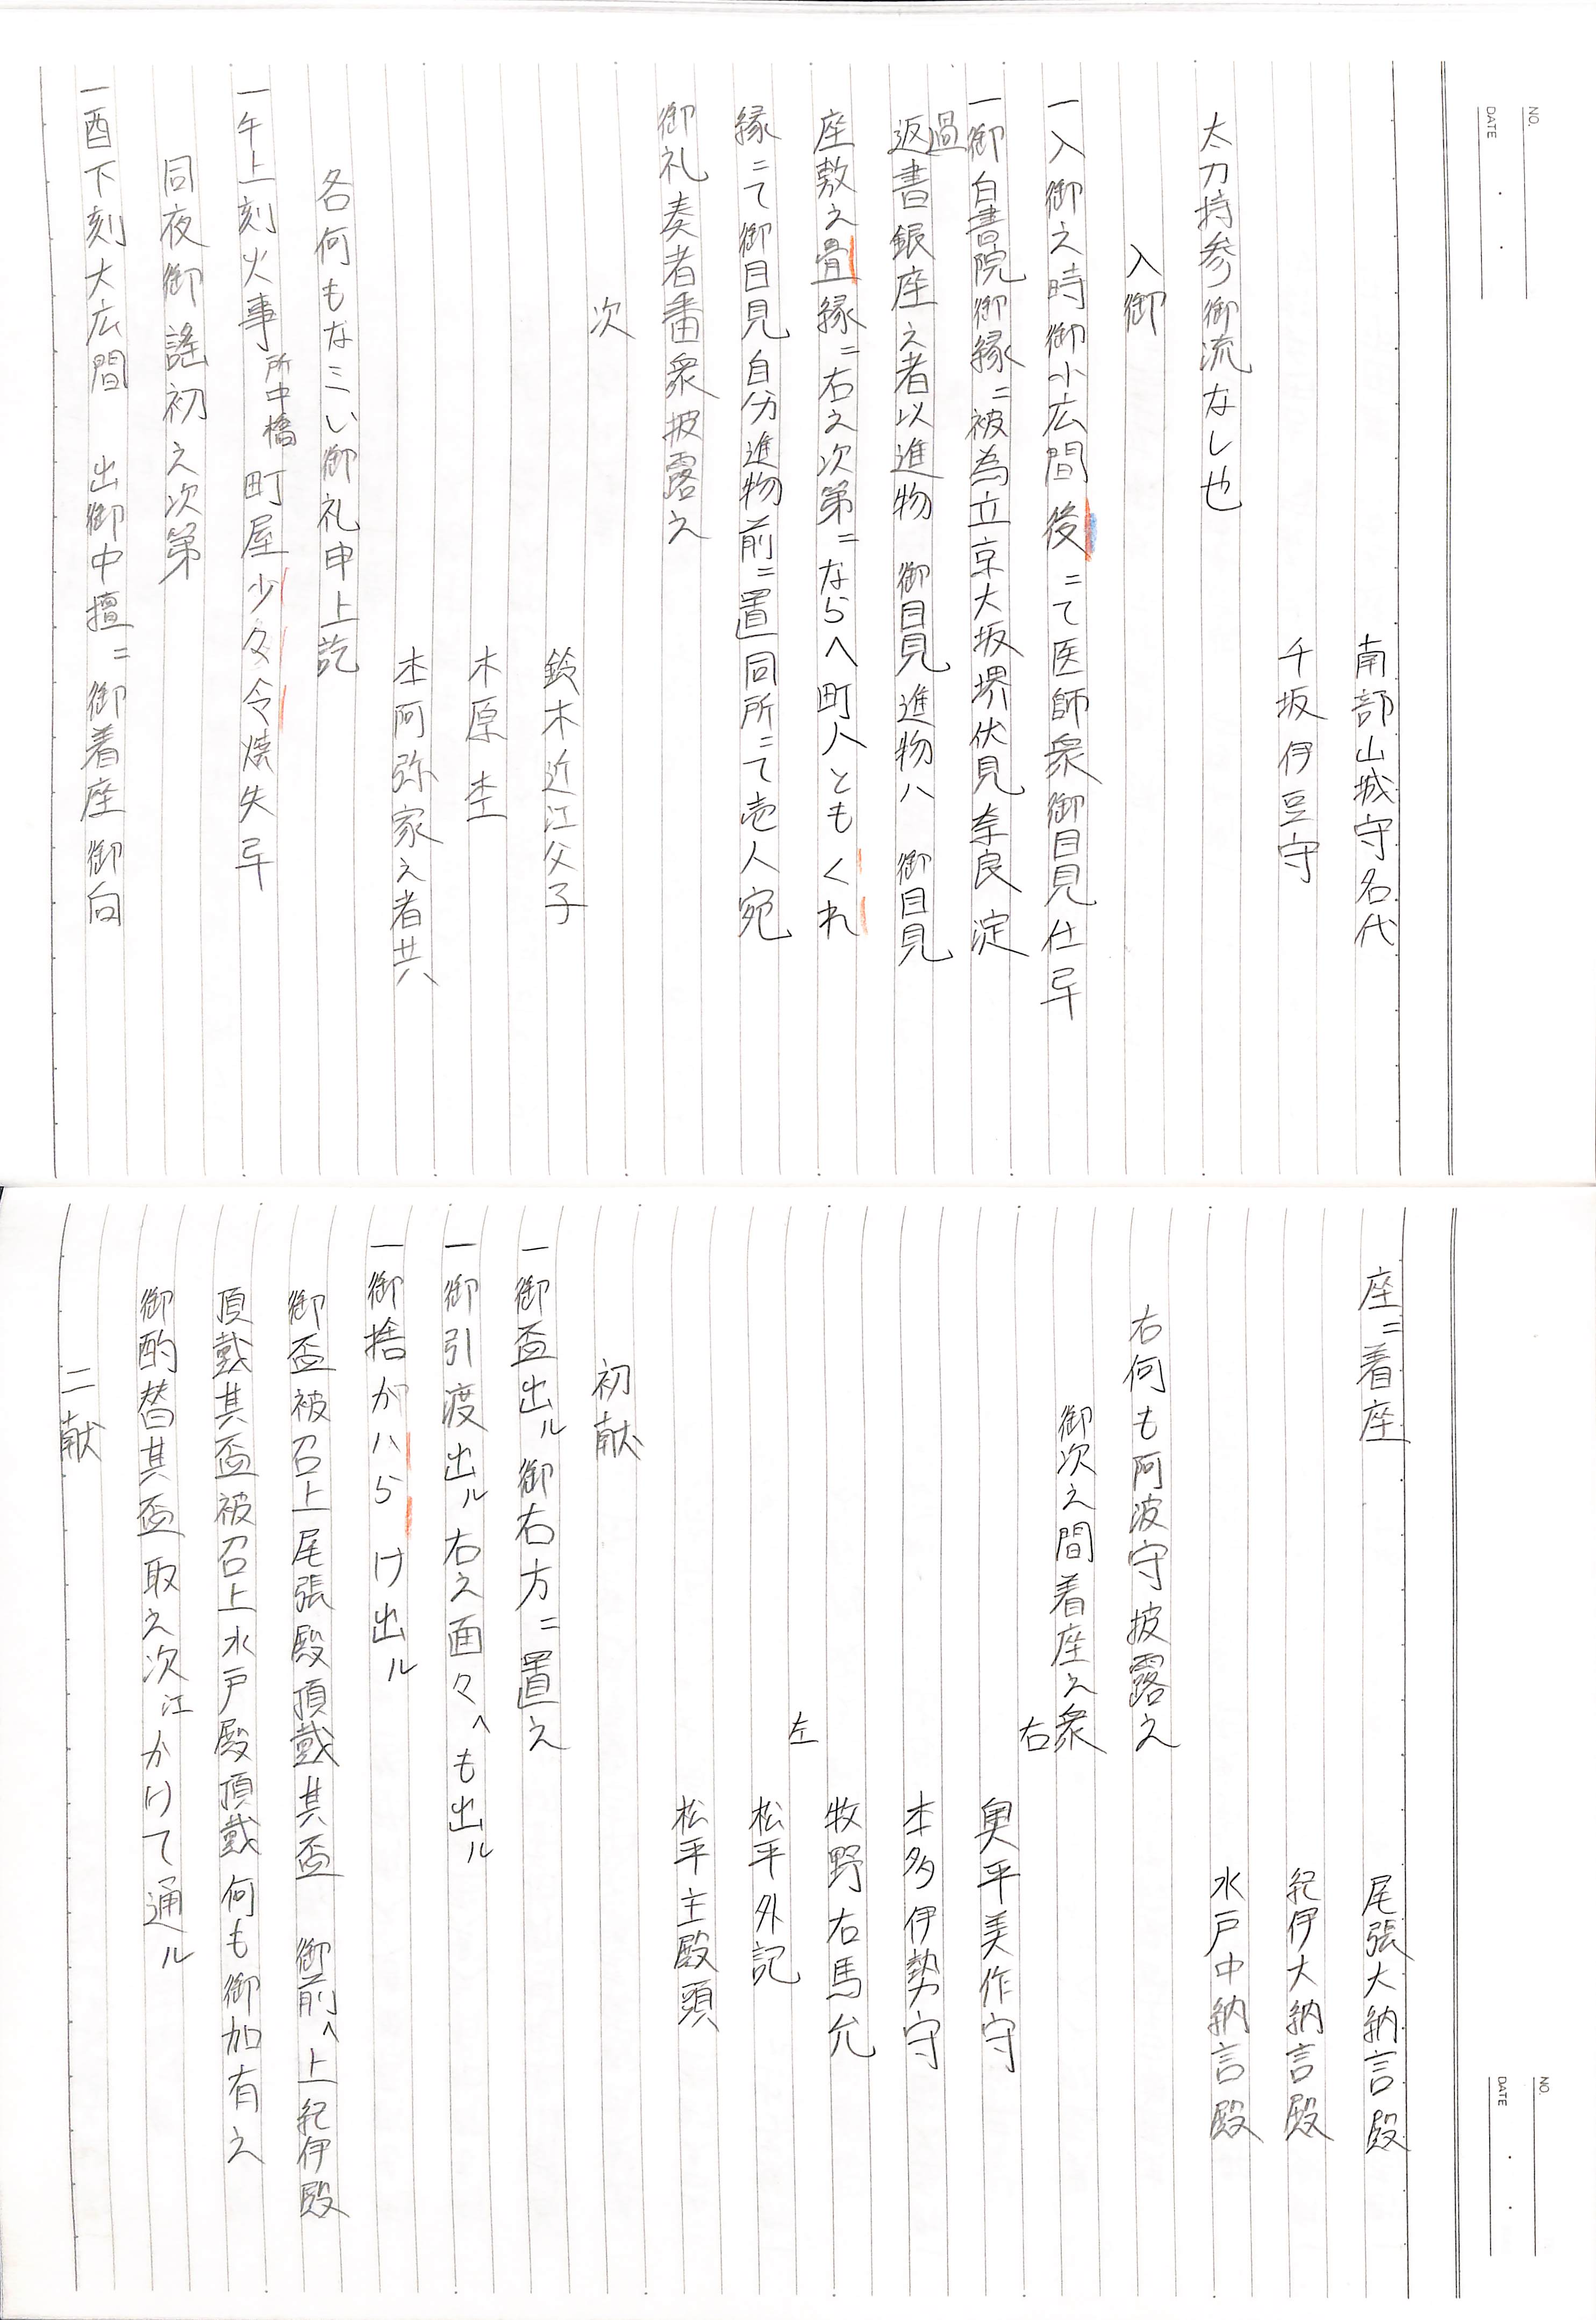 NO.
DATE
南部山城守名代
千坂伊豆守
太刀持参御流なし也
入御
一入御之時御小広間後ニて医師衆御目見仕㔺
一御白書院御縁ニ被為立京大坂堺伏見奈良淀
過
返書銀座之者以進物 御目見進物ハ 御目見
座敷之畳縁ニ右之次第ニならへ町人ともくれ
縁ニて御目見自分進物前ニ置同所ニて壱人宛
御礼奏者番衆披露之
次
鈴木近江父子
木原杢
本阿弥家之者共
各何もなミい御礼申上訖
一午上刻火事所中橋町屋少々令焼失㔺
同夜御謡初之次第
一酉下刻大広間 出御中擅ニ御着座御向
NO.
DATE
座ニ着座
尾張大納言殿
紀伊大納言殿
水戸中納言殿
右何も阿波守披露之
御次之間着座之衆
右
奥平美作守
本多伊勢守
牧野右馬允
左
松平外記
松平主殿頭
初献
一御盃出ル御右方ニ置之
一御引渡出ル右之面々へも出ル
一御捨かハらけ出ル
御盃被召上尾張殿頂戴其盃 御前へ上紀伊殿
頂戴其盃被召上水戸殿頂戴何も御加有之
御酌替其盃取之次江かけて通ル
二献